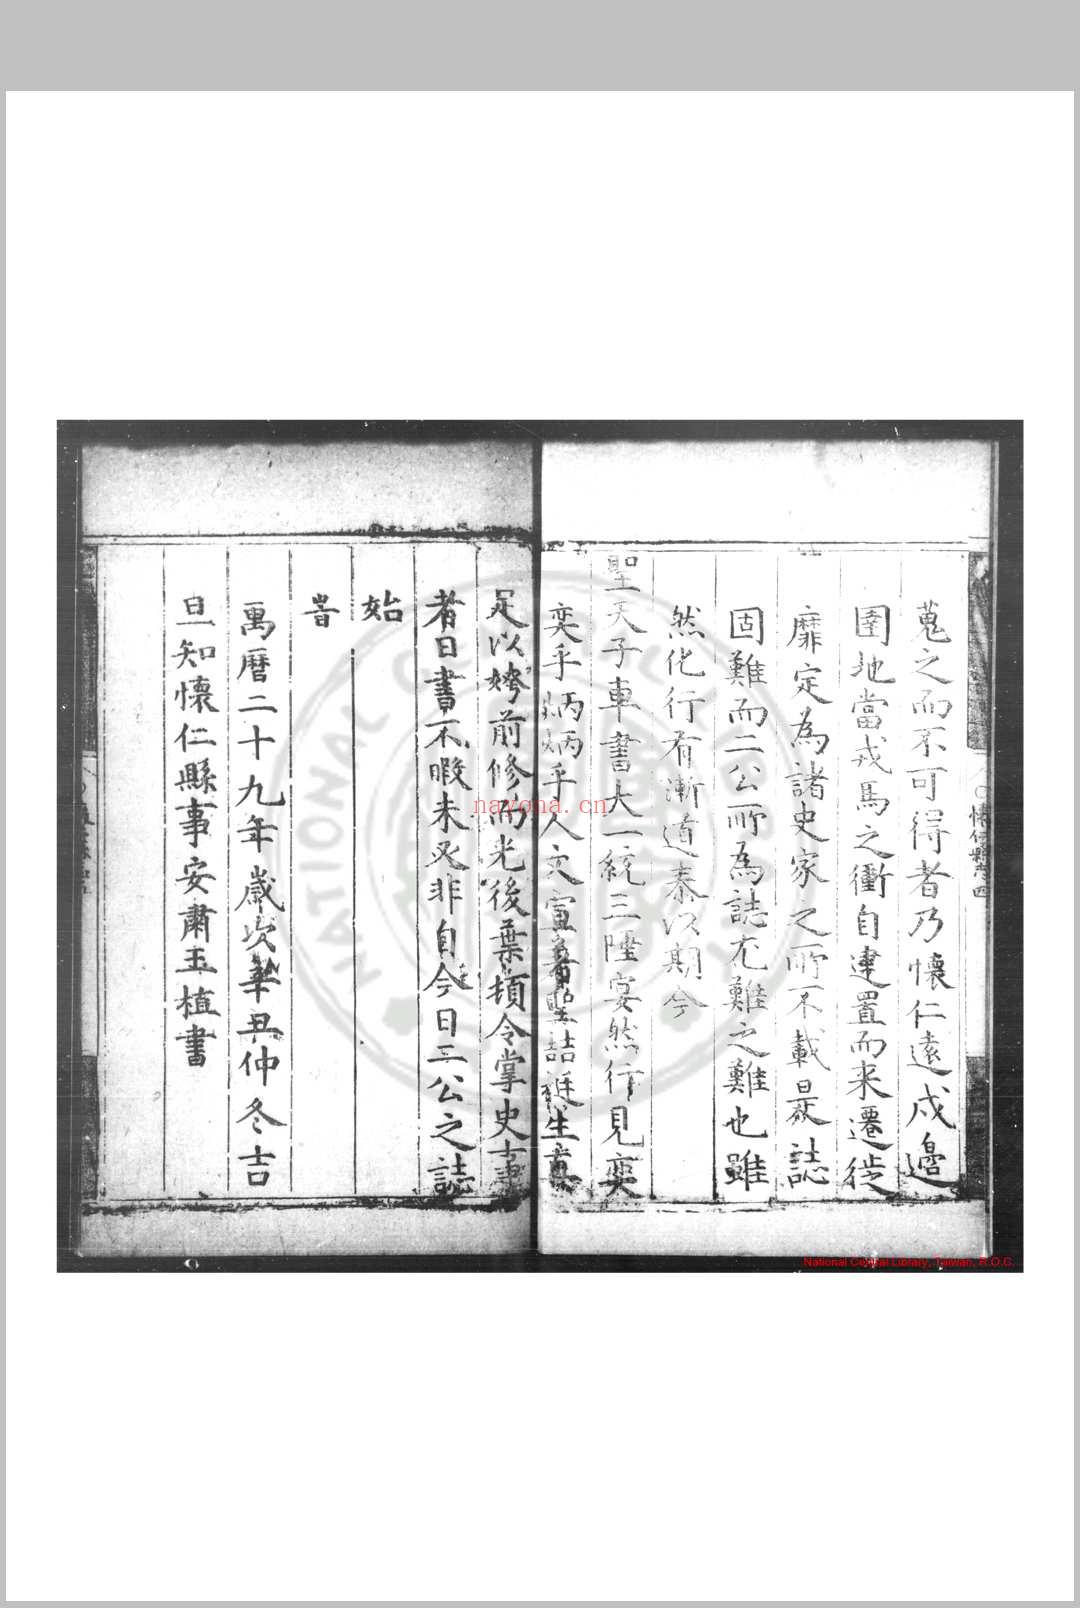 蒐之而不可得者乃懷仁遠戍邊
圉地當戎馬之衝自建置而来遷徙
靡定為諸史家之所不載是誌
固難而二公而為誌尤難之難也雖
然化行有漸道泰以期今
聖天子車書大一統三陲宴然行見奕
奕乎炳炳乎人文宣著聖喆誕生真
足以媲前修而光後葉頋令掌史事
者日書不暇未必非自今日二公之誌
始
旹
萬曆二十九年歲次辛丑仲冬吉
旦知懷仁縣事安肅王植書
懷仁縣志 四
NATIONAL CENTRAL LIBRARY
nayona.cn
National Central Library, Taiwan, R.O.C.